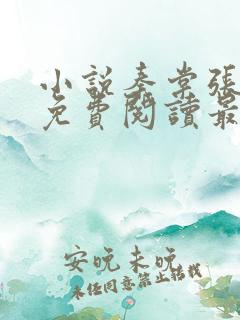 小说秦棠張
免費閱讀最
安晚未晚
未经同意禁止转载